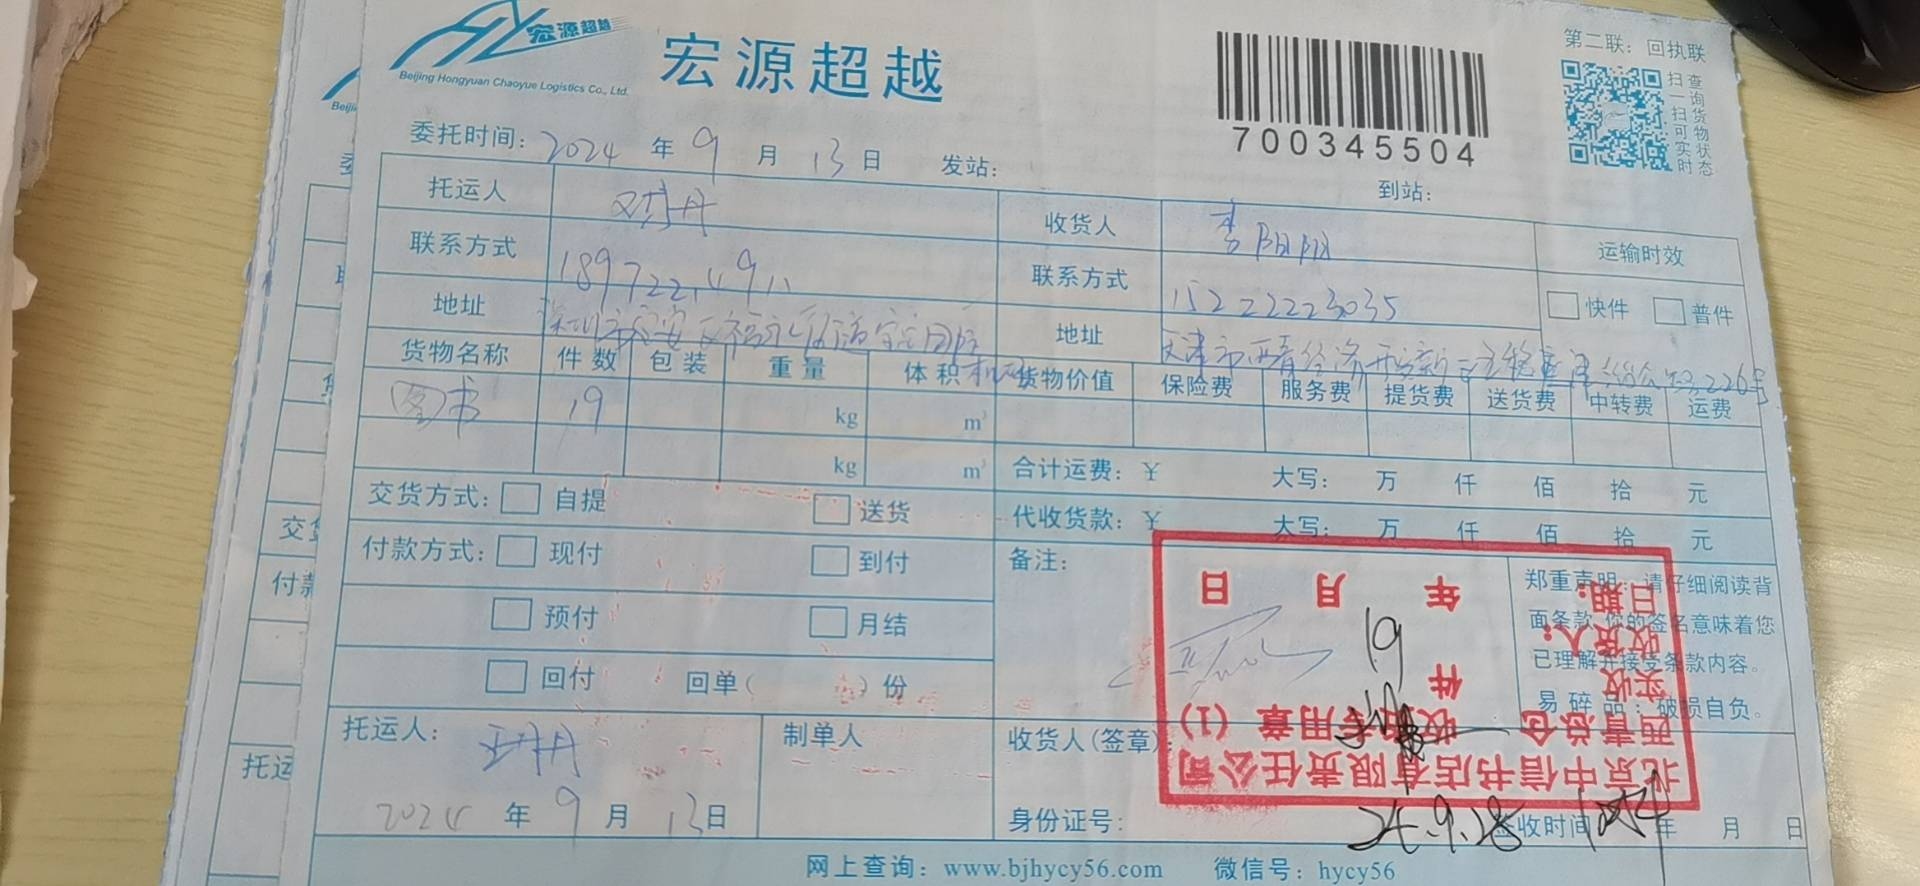 宏源超越
Beijing Hongyuan Chaoyue Logistics Co., Ltd.
宏源超越
700345504
第二联：回执联
扫一扫可实时
查询货物状态
委托时间：2024 年 9 月 13 日 发站： 到站：
托运人
收货人 李阴阴
运输时效
联系方式
联系方式 15222223035
快件 普件
地址 深圳市宝安区福永
地址 天津市西青经济开发 226号
货物名称 件数 包装 重量 体积 货物价值 保险费 服务费 提货费 送货费 中转费 运费
图书 19 kg m³
kg m³
合计运费：¥ 大写： 万 仟 佰 拾 元
交货方式： 自提 送货
代收货款：¥ 大写： 万 仟 佰 拾 元
付款方式： 现付 到付
预付 月结
回付 回单( ) 份
备注：
郑重声明：请仔细阅读背
面条款 您的签名意味着您
已理解并接受条款内容。
易碎品：破损自负。
托运人：
2024 年 9 月 13 日
制单人
收货人(签章)：
身份证号：
签收时间 年 月 日
北京中信书店有限责任公司
西青总仓 收货专用章 (1)
实收 19 件
收货人：
日期： 年 月 日
24.9.28
网上查询：www.bjhycy56.com 微信号：hycy56